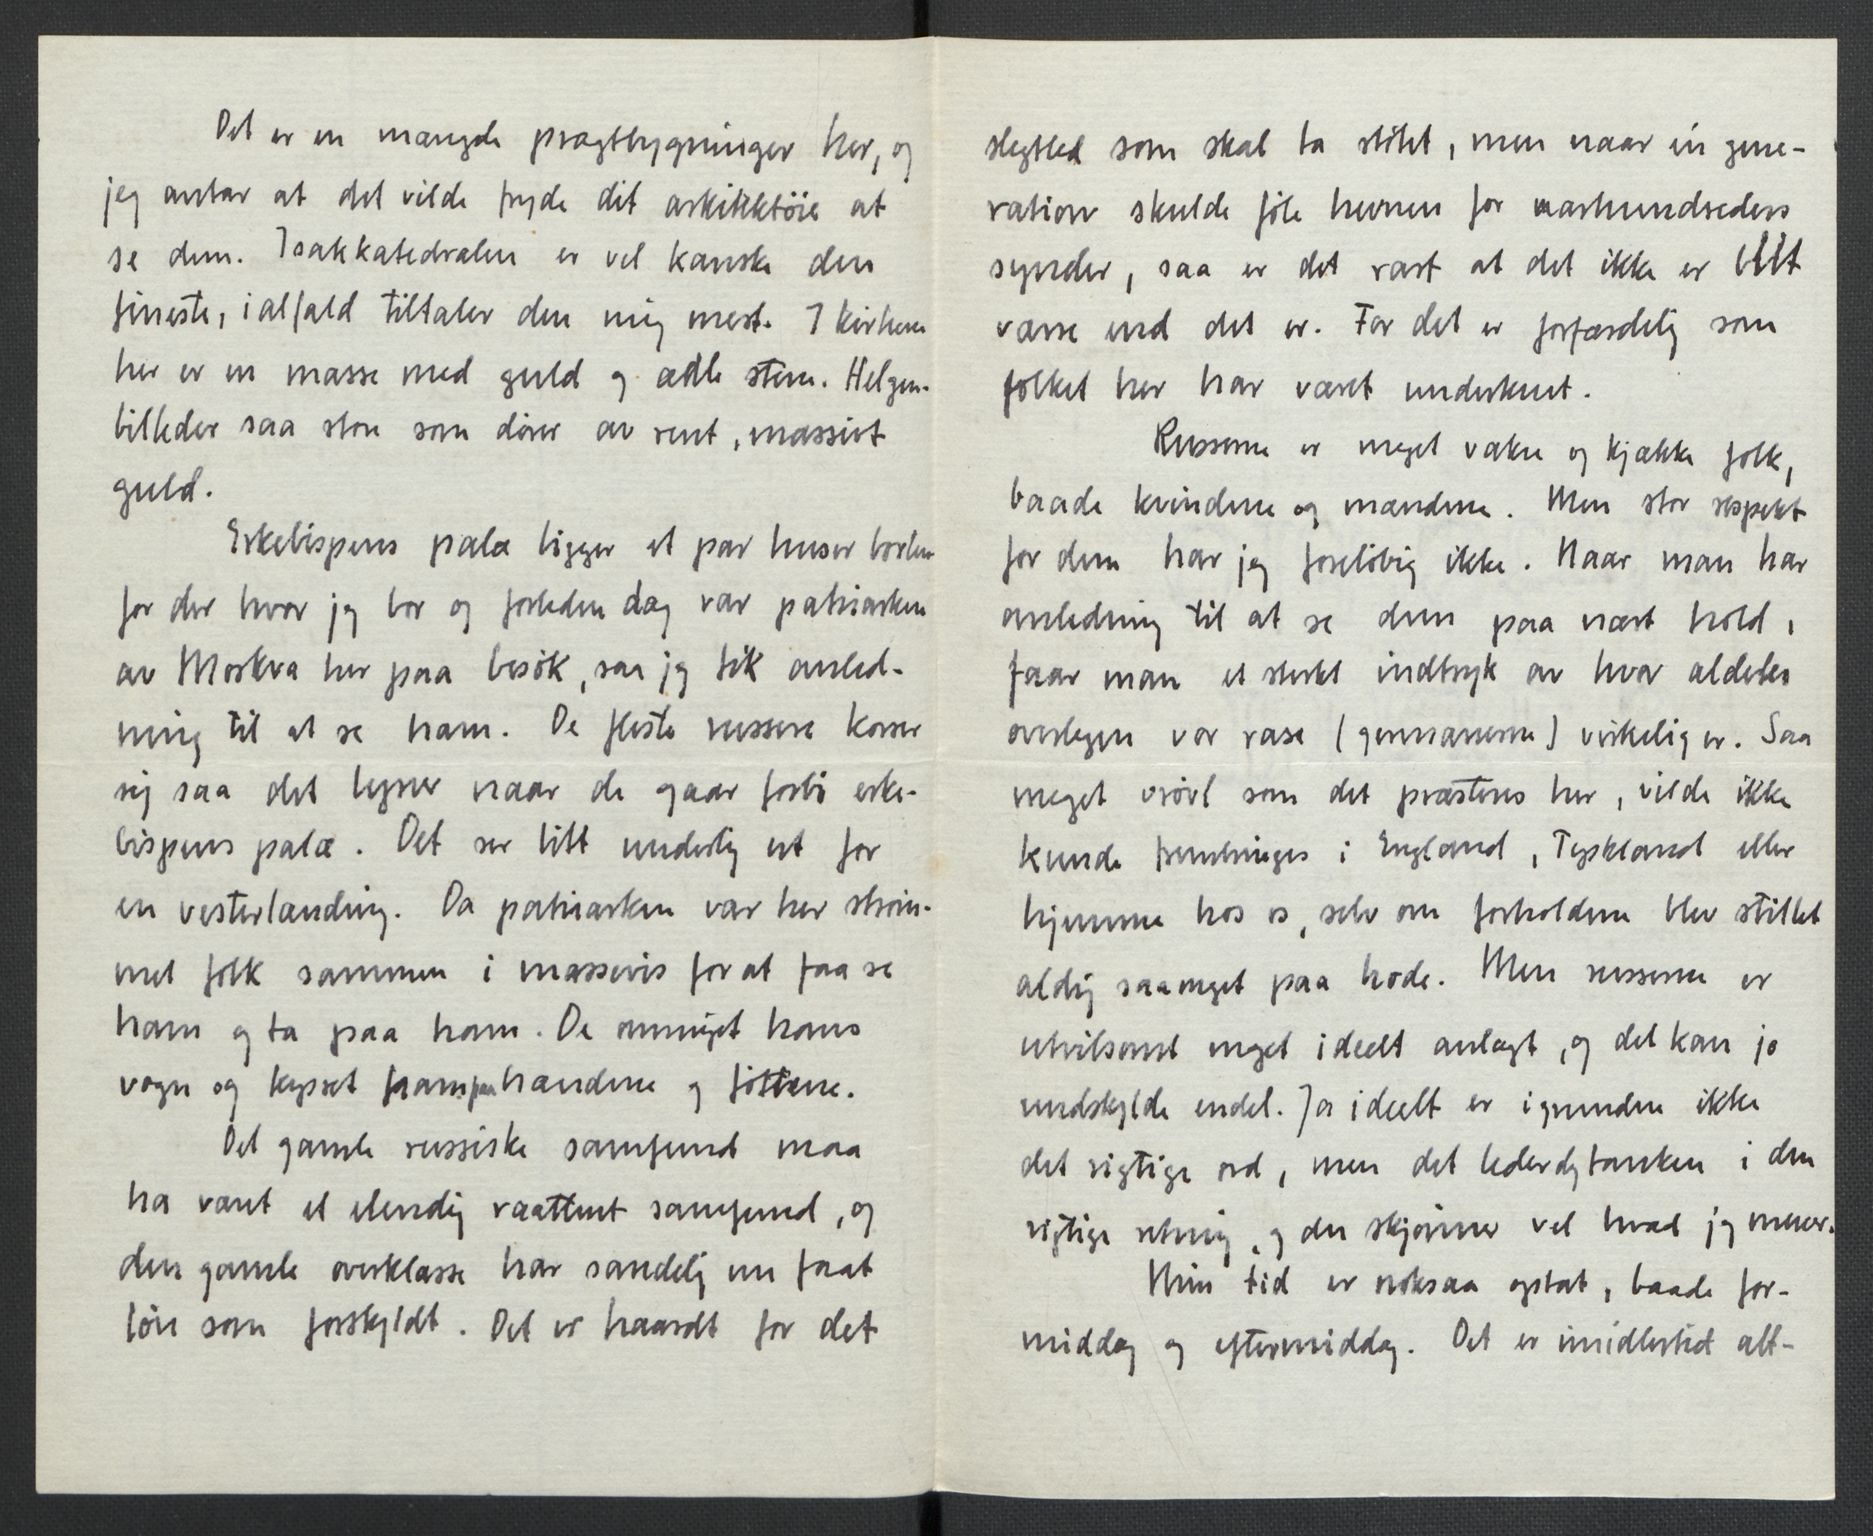 Det er en mængde pragtbygninger her, og
jeg antar at det vilde fryde dit arkitektöie at
se dem. Isakkatedralen er vel kanske den
fineste, ialfald tiltaler den mig mest. I kirkene
her er en masse med guld og ædle stene. Helgen-
billeder saa store som dører av rent, massivt
guld.
Erkebispens palæ ligger et par huser borten-
for der hvor jeg bor og forleden dag var patriarken
av Moskva her paa besök, saa jeg fik anled-
ning til at se ham. De fleste russere korser
sig saa det lyner naar de gaar forbi erke-
bispens palæ. Det ser litt underlig ut for
en vesterlænding. Da patriarken var her ström-
met folk sammen i massevis for at faa se
ham og ta paa ham. De omringet hans
vogn og kysset ham paa hændene og föttene.
Det gamle russiske samfund maa
ha været et elendig raattent samfund, og
den gamle overklasse har sandelig nu faat
lön som forskyldt. Det er haardt for det
slegtled som skal ta stötet, men naar én gene-
ration skulde föle hevnen for aarhundreders
synder, saa er det rart at det ikke er blit
værre end det er. For det er forfærdelig som
folket her har været underkuet.
Russerne er meget vakre og kjække folk,
baade kvindene og mændene. Men stor respekt
for dem har jeg foreløbig ikke. Naar man har
anledning til at se dem paa nært hold,
faar man et sterkt indtryk av hvor aldeles
overlegen vor rase (germanerne) virkelig er. Saa
meget vrövl som det præsteres her, vilde ikke
kunde frembringes i England, Tyskland eller
hjemme hos os, selv om forholdene blev stillet
aldrig saa meget paa hode. Men russerne er
utvilsomt meget ideelt anlagt, og det kan jo
undskylde endel. Ja ideelt er igrunden ikke
det rigtige ord, men det leder dog tanken i den
rigtige retning, og du skjönner vel hvad jeg mener.
Min tid er noksaa optat, baade for-
middag og eftermiddag. Det er imidlertid alt-